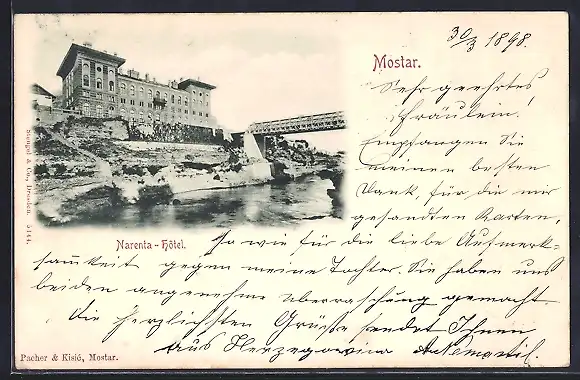 30/3 1898.
Mostar.
Sehr geehrtes
Fräulein!
Empfangen Sie
meinen besten
Dank, für die mir
gesandten Karten,
so wie für die liebe Aufmerk-
samkeit gegen meine Tochter. Sie haben uns
beiden angenehme Überraschung gemacht.
Die herzlichsten Grüße sendet Ihnen
aus Herzegowina
Narenta-Hôtel.
Stengel & Co., Dresden. 5144.
Pacher & Kisić, Mostar.